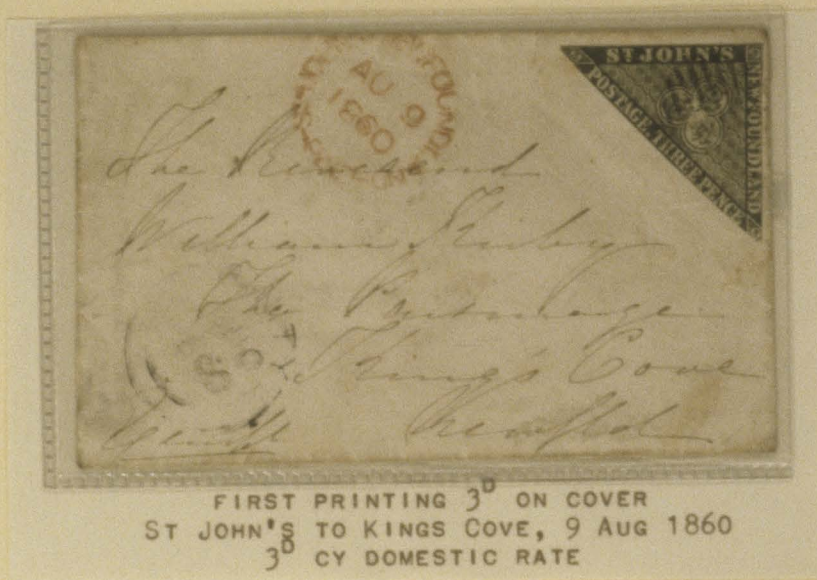 ST JOHN'S
NEWFOUNDLAND
POSTAGE, THREE PENCE
AU 9
1860
The Reverend
William Kirby
The Parsonage
King's Cove
Newfld
FIRST PRINTING 3D ON COVER
ST JOHN'S TO KINGS COVE, 9 AUG 1860
3D CY DOMESTIC RATE